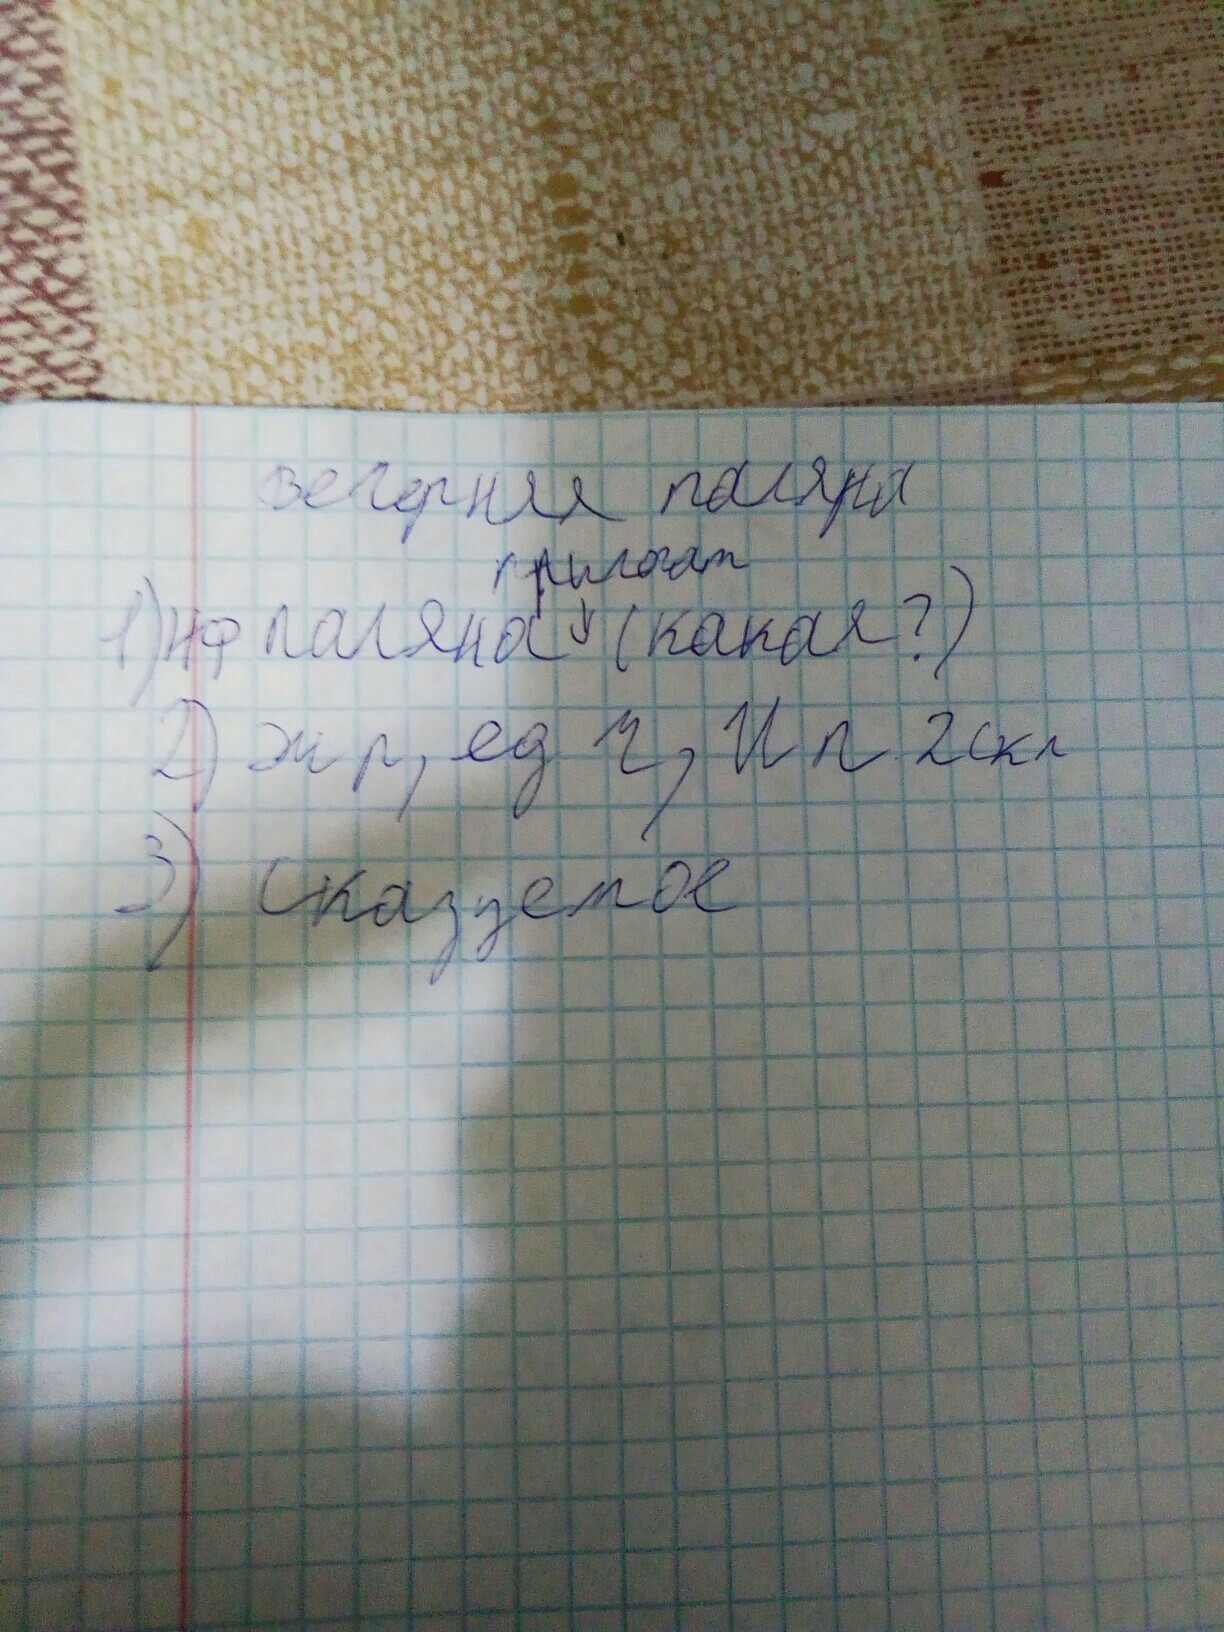 вечерняя паляна
прилогат
1) нф паляна ↓ (какая?)
2) ж р, ед ч, И п 2скл
3) сказуемое